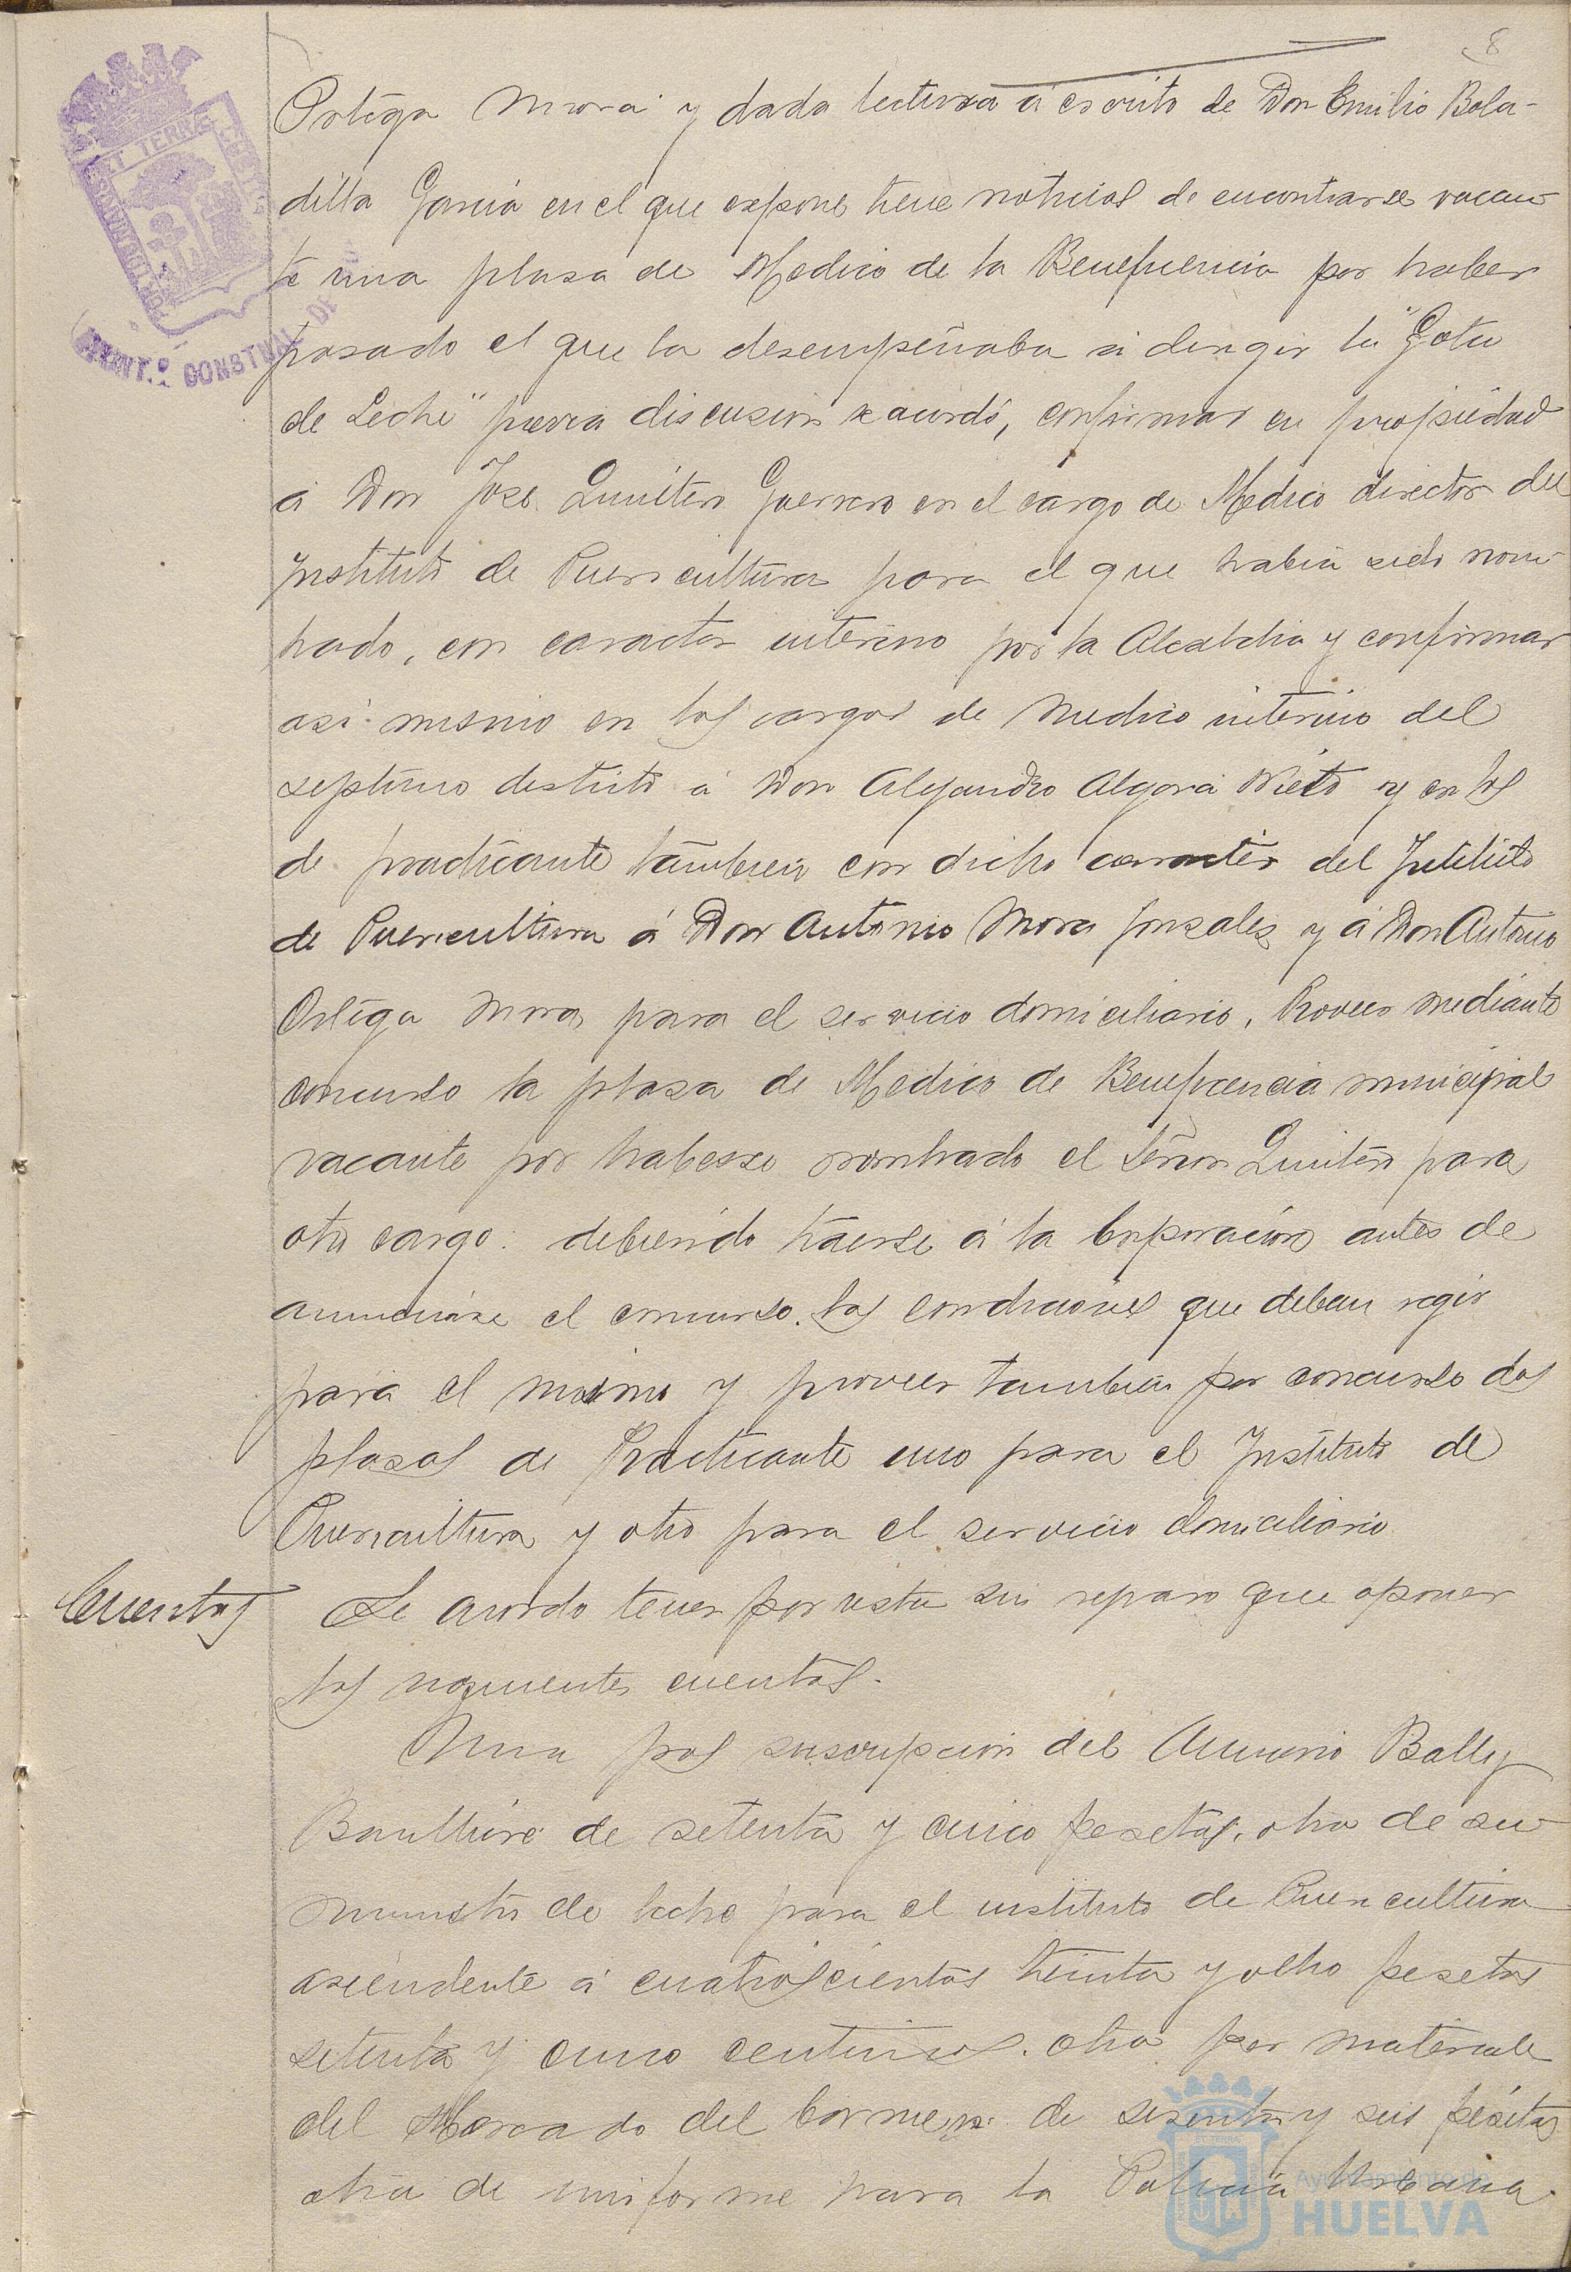 8
Ortega Mora y dada lectura á escrito de Don Emilio Boba-
dilla Garcia en el que expone tiene noticias de encontrarse vacan-
te una plasa de Medico de la Beneficencia por haber
pasado el que la desempeñaba á dirigir la "Gota
de Leche" previa discusion se acordó, confirmar en propiedad
á Don Jose Quintero Guerrero en el cargo de Medico director del
Instituto de Puericultura para el que habia sido nom-
brado, con caracter interino por la Alcaldia y confirmar
asi mismo en los cargos de Medico interino del
septimo distrito á Don Alejandro Algora Nieto y en los
de practicante tambien con dicho caracter del Intituto
de Puericultura á Don Antonio Mora Gonsales y á Don Antonio
Ortega Mora para el servicio domiciliario, Proveer mediante
concurso la plasa de Medico de Beneficencia municipal
vacante por haberse nombrado el Señor Quintero para
otro cargo: debiendo traerse á la Corporacion antes de
anunciarse el concurso las condiciones que deban regir
para el mismo y proveer tambien por concurso dos
plasas de Practicante uno para el Instituto de
Puericultura y otro para el servicio domiciliario
Cuentas
Se acordo tener por vista sin reparo que oponer
las siguientes cuentas.
Una por suscripcion del Anuario Bally
Baulliere de setenta y cinco pesetas, otra de su-
ministro de leche para el instituto de Puericultura
ascendente á cuatroscientas treinta y ocho pesetas
setenta y cinco centimos. otra por materiale
del Mercado del Carmen de sesenta y seis pesetas
otra de uniforme para la Policia Urbana.
AYUNT.º CONSTNAL DE
PORTUS MARIS ET TERRAE CUSTODIA
Ayuntamiento de
HUELVA